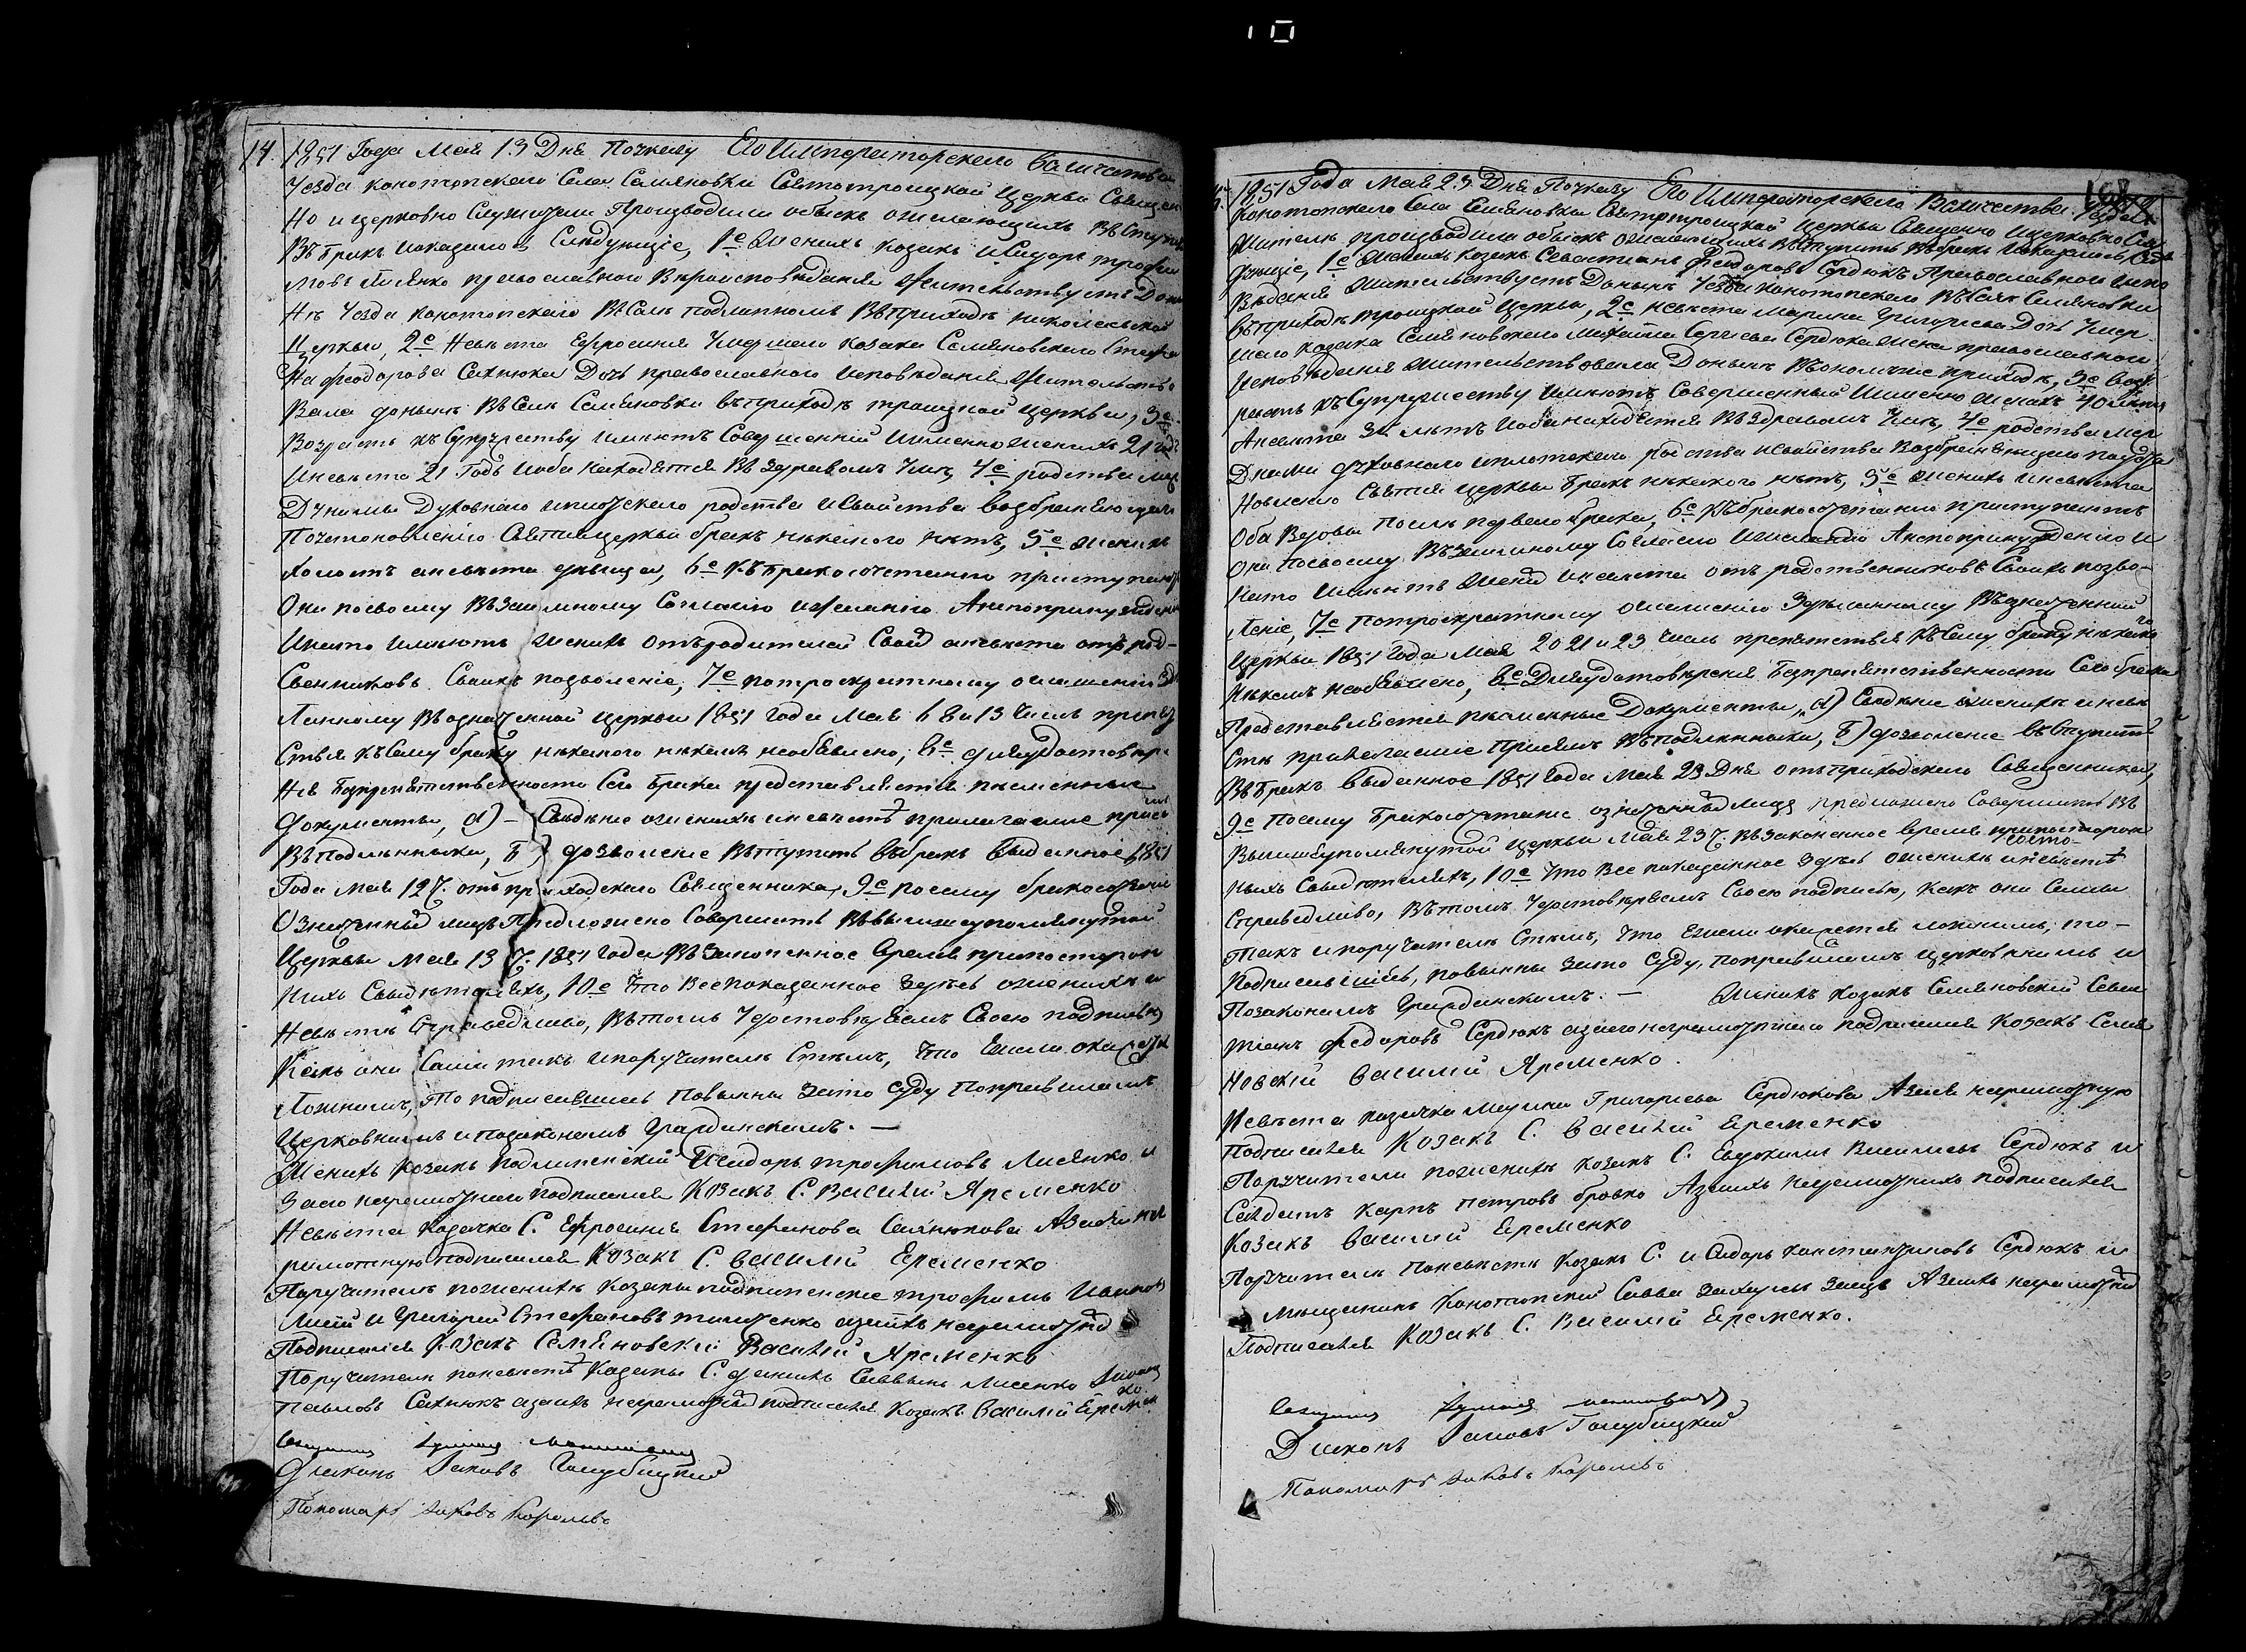 14. 1851 Года Мая 13 Дня По указу Его Императорскаго Величества
Уезда Конотопскаго Села Семяновки Святотроицкой Церкви Священ
но и церковно служители Производили обыскъ о желающихъ вступить
Въ бракъ и оказалось следующие, 1е Женихъ козакъ Исидоръ Трофи
мовъ Лисянко православнаго Вероисповедания жительствуетъ Доны
не Уезда Конотопскаго Въ Селе Подлипномъ Въ Приходе Николаевской
Церкви, 2е Невеста Ефросиния Умершаго козака Семяновскаго Стефа
на Феодорова Сахнюка Дочь православнаго исповедания жительство
вала доныне въ Селе Семяновки въ приходе троицкой церкви, 3е
Возрастъ къ Супружеству имеютъ Совершенный именно женихъ 21 годъ
Иневеста 21 Годъ и оба находятся въ здравомъ уме, 4е родства меж
Ду ними Духовнаго иплотскаго родства и Свойства возбраняющаго
По установлению Святой церкви бракъ никакого нетъ, 5е женихъ
холостъ а невеста девица, 6е Къ Бракосочетанию приступаютъ
Они посвоему взаимному Согласию и желанию А не по принуждению
И на то имеютъ женихъ отъ родителей Свой а невеста отъ род-
Свенниковъ Своихъ позволение, 7е по троекратному оглашению зде
ланному въ означенной церкви 1851 года Мая 6 8 и 13 числъ препят
Ствия къ Сему браку никакого никемъ необъявлено, 8е для удостовере
ния Безпрепятственности Сего брака представляются писменные
документы, а) – Сведение о женихе и невесте прилагаемые присемъ
Въ подлиннике, Б) дозволение вступить въ бракъ выданное 1851
Года Мая 12 Ч. отъ приходскаго Священника, 9е по сему бракосочетание
Означенныхъ лицъ Предложено Совершить въ вышеупомянутой
Церкви Мая 13 Ч. 1851 года въ законное время при посторон
нихъ Свидетеляхъ, 10е Что все показанное здесь о женихе и
Невесте Справедливо, въ томъ Удостоверяемъ Своею подписью
Какъ они Сами такъ и поручители Стемъ, что ежели окажется
Ложнымъ, то подписавшиесь Повинны за то Суду По правиламъ
Церковнымъ и по законамъ Гражданскимъ. —
Женихъ Козакъ Подлипенский Исидоръ Трофимовъ Лисянко и
За его неграмотнаго подписался Козакъ С. Василий Яременко
Невеста Козачка С. Ефросиния Стефанова Сахнюкова А за ею не
грамотную подписался Козакъ С. Василий Еременко
Поручители по женихе Козаки подлипенские Трофимъ Ивановъ
и Григорий Стефановъ азаихъ неграмотныхъ
Подписался Козакъ Семяновский Василий Яременко
Поручители по невесте Козаки С. Саввинъ Лисенко
Павловъ Сахнюкъ азаихъ неграмотныхъ подписался Козакъ Василий Еременко
Диаконъ Иаковъ Голубицкий
Пономарь Иаковъ Королевъ
1851 Года Мая 23 Дня По указу Его Императорскаго Величества Уезда
Конотопскаго Села Семяновки Святотроицкой Церкви Священно и церковно Слу
жители производили обыскъ о желающихъ вступить въ бракъ и оказалось Следу
ющие, 1е Женихъ Козакъ Севастиянъ Феодоровъ Сердюкъ Православнаго испо
ведания жительствуетъ Доныне Уезда Конотопскаго въ Селе Семяновки
въ приходе троицкой церкви, 2е невеста Марина Григорьева Дочь Умер
шаго козака Семяновскаго Михаила Сергиева Сердюка жена православнаго
исповедания жительствовала Доныне въ ономъ же приходе, 3е воз
растъ къ Супружеству имеютъ Совершенный именно женихъ 40 летъ
А невеста летъ и оба находятся въ здравомъ уме, 4е родства меж
Ду ними духовнаго и плотскаго родства и свойства возбраняющаго по уста
новлению Святой церкви бракъ никакого нетъ, 5е женихъ и невеста
Оба вдовы после перваго брака, 6е къ бракосочетанию приступаютъ
Они посвоему взаимному Согласию и желанию А не по принуждению и
на то имеютъ женихъ и невеста отъ родственниковъ Своихъ позво-
ление, 7е по троекратному оглашению зделанному въ означенной
церкви 1851 года Мая 20 21 и 23 числъ препятствия къ Сему браку никакого
никемъ необъявлено, 8е Для удостоверения безпрепятственности Сего брака
Представляются писменные Документы, а) Сведение о женихе и неве
сте прилагаемые присемъ въ подлиннике, Б) дозволение вступить
въ бракъ выданное 1851 Года Мая 23 Дня отъ приходскаго Священника,
9е посему бракосочетание означенныхъ лицъ предложено Совершить въ
Вышеупомянутой церкви Мая 23 Ч. въ законное время при посторон
нихъ Свидетеляхъ, 10е Что все показанное здесь о женихе и невесте
Справедливо, въ томъ Удостоверяемъ Своею подписью, какъ они Сами
такъ и поручители Стемъ, что ежели окажется ложнымъ, то-
Подписавшиесь, повинны за то Суду, по правиламъ церковнымъ и
По законамъ Гражданскимъ. — Женихъ Козакъ Семяновский Севас
тианъ Федоровъ Сердюкъ а за его неграмотнаго подписался Козакъ Семя
новский Василий Яременко.
Невеста козачка Марина Григорьева Сердюкова А за ея неграмотную
подписался Козакъ С. Василий Еременко
Поручители по женихе Козакъ С. Евдокимъ Васильевъ Сердюкъ и
Солдатъ Карпъ Петровъ Бровко Азаихъ неграмотныхъ подписался
Козакъ Василий Еременко
Поручители по невесте Козакъ С. Исидоръ Константиновъ Сердюкъ и
Мещанинъ Конотопский Савва Заецъ Азаихъ неграмотныхъ
Подписался Козакъ С. Василий Еременко.
Диаконъ Иаковъ Голубицкий
Пономарь Иаковъ Королевъ